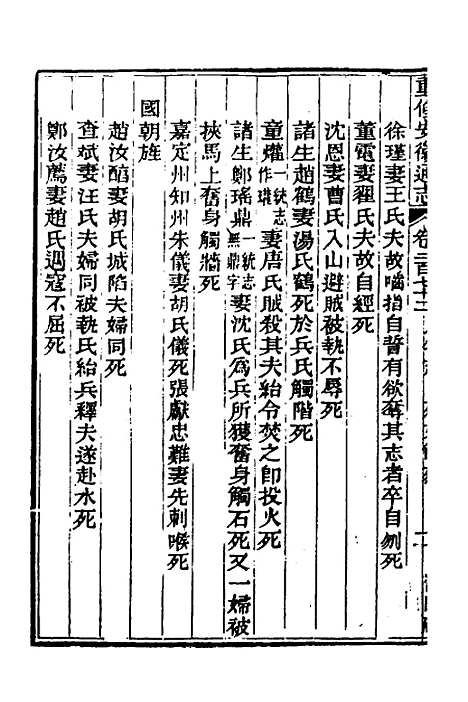 重修安徽通志 卷二百
徐瑾妻王氏夫故嚙指自誓有欲奪其志者卒自刎死
董電妻程氏夫故自經死
沈恩妻曹氏入山避賊被執不辱死
諸生趙鶴妻湯氏鶴死於兵氏觸階死
童爟一統志作瓘妻唐氏賊殺其夫紿令焚之卽投火死
諸生鄭瑤鼎一統志無鼎字妻沈氏爲兵所獲奮身觸石死又一婦被
挾馬上奮身觸牆死
嘉定州知州朱儀妻胡氏儀死張獻忠難妻先刺喉死
國朝旌
趙汝 妻胡氏城陷夫婦同死
查斌妻汪氏夫婦同被執氏紿兵釋夫遂赴水死
鄭汝薦妻趙氏遇寇不屈死